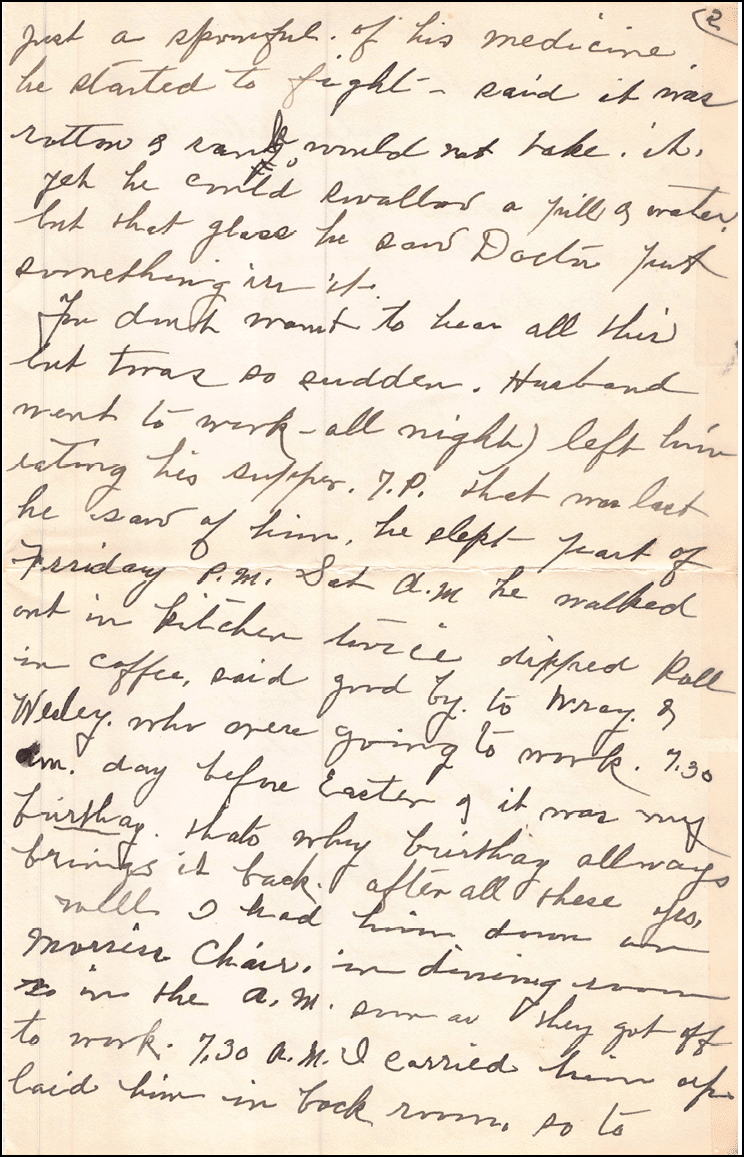 2
just a spoonful. of his medicine
he started to fight - said it was
rotton & rank, would not take. it.
yet he could swallow a pill & water,
but that glass he said Doctor put
something in it.
You don't want to hear all this
but twas so sudden. Husband
went to work - all night) left him
eating his supper. 7.P. that was last
he saw of him, he slept part of
Friday P.M. Sat A.M he walked
out in kitchen twice dipped Roll
in coffee, said good by. to Wray. &
Wesley. who were going to work. 7.30
am. day before Easter & it was my
birthay. thats why birthay allways
brings it back. after all these yrs,
well I had him down on
Morriss Chair. in dining room
so in the A.M. soon as they got off
to work. 7.30 A.M. I carried him up.
laid him in back room, so to